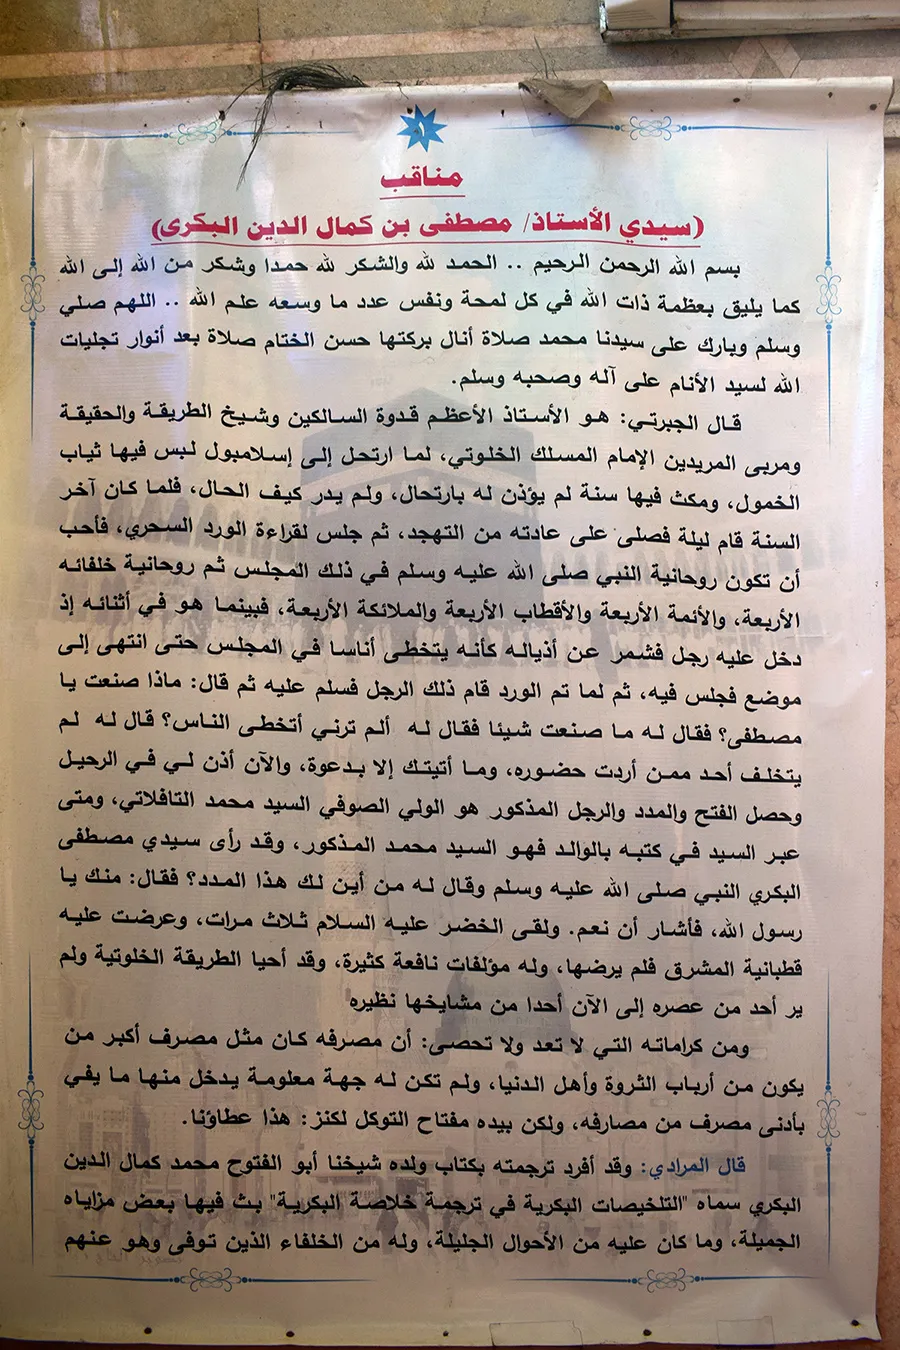 ١
مناقب
(سيدي الأستاذ/ مصطفى بن كمال الدين البكرى)
بسم الله الرحمن الرحيم .. الحمد لله والشكر لله حمدا وشكر من الله إلى الله
كما يليق بعظمة ذات الله في كل لمحة ونفس عدد ما وسعه علم الله .. اللهم صلي
وسلم وبارك على سيدنا محمد صلاة أنال بركتها حسن الختام صلاة بعد أنوار تجليات
الله لسيد الأنام على آله وصحبه وسلم.
قال الجبرتي: هو الأستاذ الأعظم قدوة السالكين وشيخ الطريقة والحقيقة
ومربى المريدين الإمام المسلك الخلوتي، لما ارتحل إلى إسلامبول لبس فيها ثياب
الخمول، ومكث فيها سنة لم يؤذن له بارتحال، ولم يدر كيف الحال، فلما كان آخر
السنة قام ليلة فصلى على عادته من التهجد، ثم جلس لقراءة الورد السحري، فأحب
أن تكون روحانية النبي صلى الله عليه وسلم في ذلك المجلس ثم روحانية خلفائه
الأربعة، والأئمة الأربعة والأقطاب الأربعة والملائكة الأربعة، فبينما هو في أثنائه إذ
دخل عليه رجل فشمر عن أذياله كأنه يتخطى أناسا في المجلس حتى انتهى إلى
موضع فجلس فيه، ثم لما تم الورد قام ذلك الرجل فسلم عليه ثم قال: ماذا صنعت يا
مصطفى؟ فقال له ما صنعت شيئا فقال له ألم ترني أتخطى الناس؟ قال له لم
يتخلف أحد ممن أردت حضوره، وما أتيتك إلا بدعوة، والآن أذن لي في الرحيل
وحصل الفتح والمدد والرجل المذكور هو الولي الصوفي السيد محمد التافلاتي، ومتى
عبر السيد في كتبه بالوالد فهو السيد محمد المذكور، وقد رأى سيدي مصطفى
البكري النبي صلى الله عليه وسلم وقال له من أين لك هذا المدد؟ فقال: منك يا
رسول الله، فأشار أن نعم. ولقى الخضر عليه السلام ثلاث مرات، وعرضت عليه
قطبانية المشرق فلم يرضها، وله مؤلفات نافعة كثيرة، وقد أحيا الطريقة الخلوتية ولم
ير أحد من عصره إلى الآن أحدا من مشايخها نظيره
ومن كراماته التي لا تعد ولا تحصى: أن مصرفه كان مثل مصرف أكبر من
يكون من أرباب الثروة وأهل الدنيا، ولم تكن له جهة معلومة يدخل منها ما يفي
بأدنى مصرف من مصارفه، ولكن بيده مفتاح التوكل لكنز: هذا عطاؤنا.
قال المرادي: وقد أفرد ترجمته بكتاب ولده شيخنا أبو الفتوح محمد كمال الدين
البكري سماه "التلخيصات البكرية في ترجمة خلاصة البكرية" بث فيها بعض مزاياه
الجميلة، وما كان عليه من الأحوال الجليلة، وله من الخلفاء الذين توفى وهو عنهم